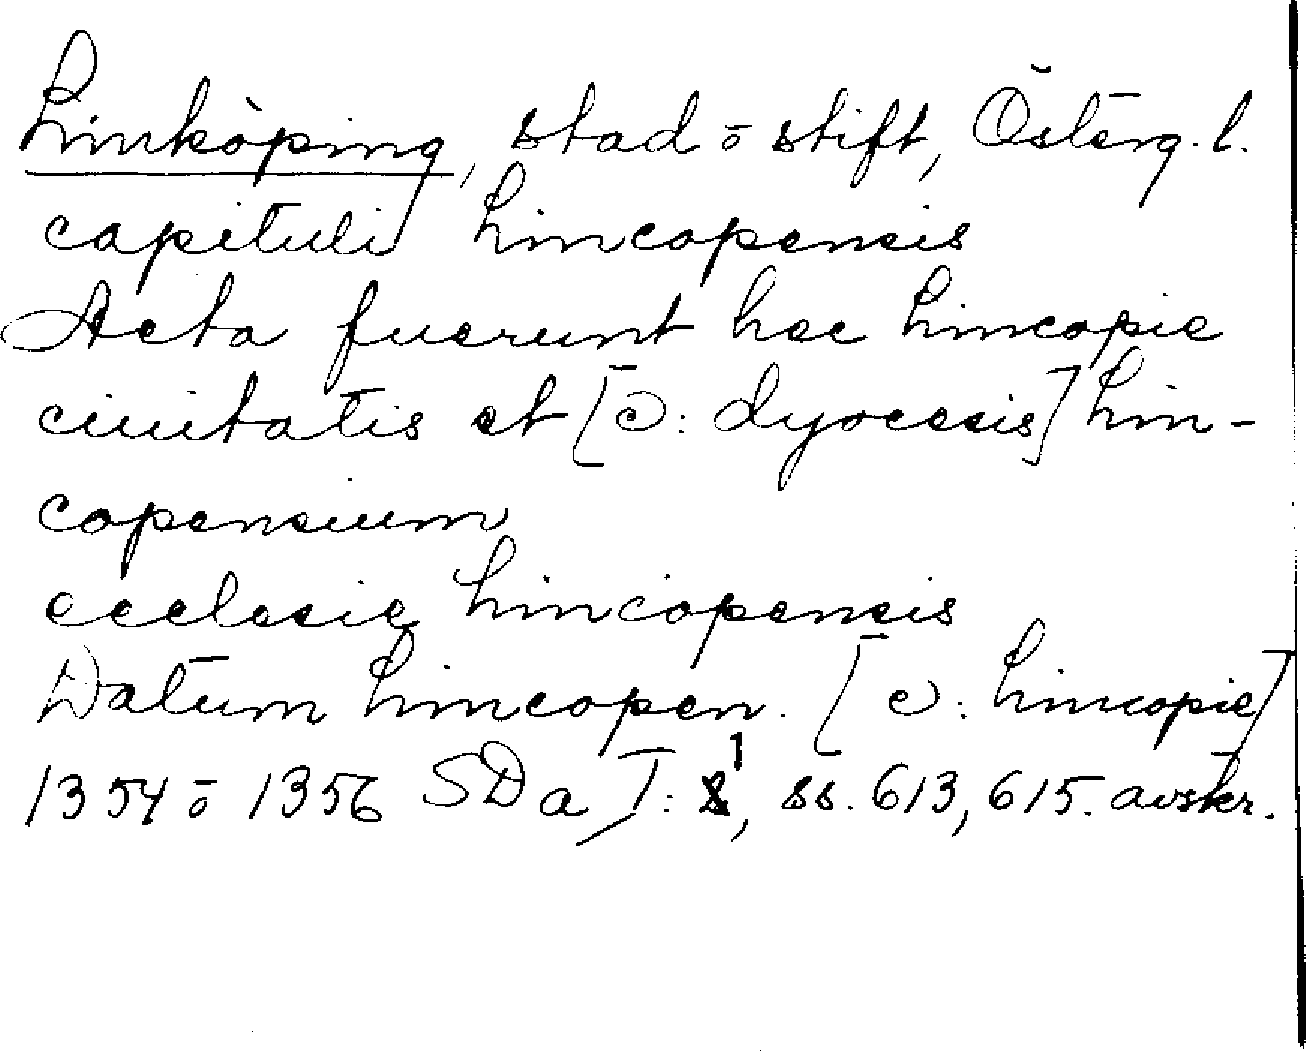 Linköping, stad o stift, Österg. l.
capituli Lincopensis
Acta fuerunt hec Lincopie
ciuitatis et [ɔ: dyocesis] Lin-
copensium
ecclesie Lincopensis
Datum Lincopen. [ɔ: Lincopie]
1354 o 1356 SDa I: 1, ss. 613, 615. avskr.